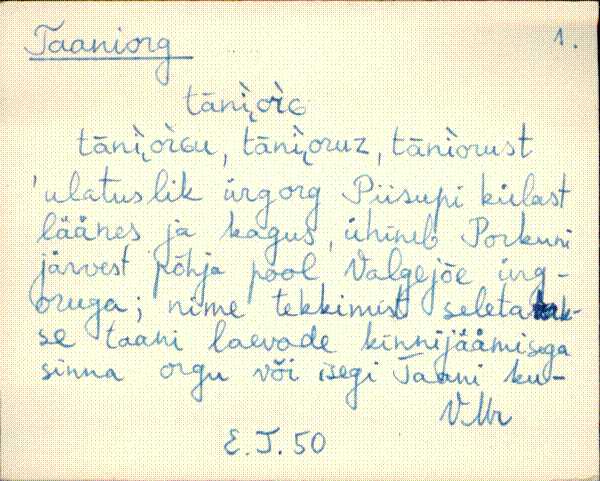 Taaniorg
1.
tāni̮òrG
tāni̮òrGu, tāni̮oruz, tāniorust
'ulatuslik ürgorg Piisupi külast
läänes ja kagus, ühineb Porkuni
järvest põhja pool Valgejõe ürg-
oruga; nime tekkimist seletatak-
se taani laevade kinnijäämisega
sinna orgu või isegi Taani ku-
VMr
E.T. 50